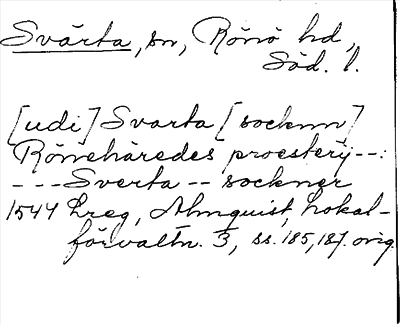 Svärta, sn, Rönö hd,
Söd. l.
[udi] Svarta [socknn]
Rönnehäredes proesterij --:
--- Sverta -- sockner
1544 Lreg, Almquist, Lokal-
förvaltn. 3, ss. 185, 187. orig